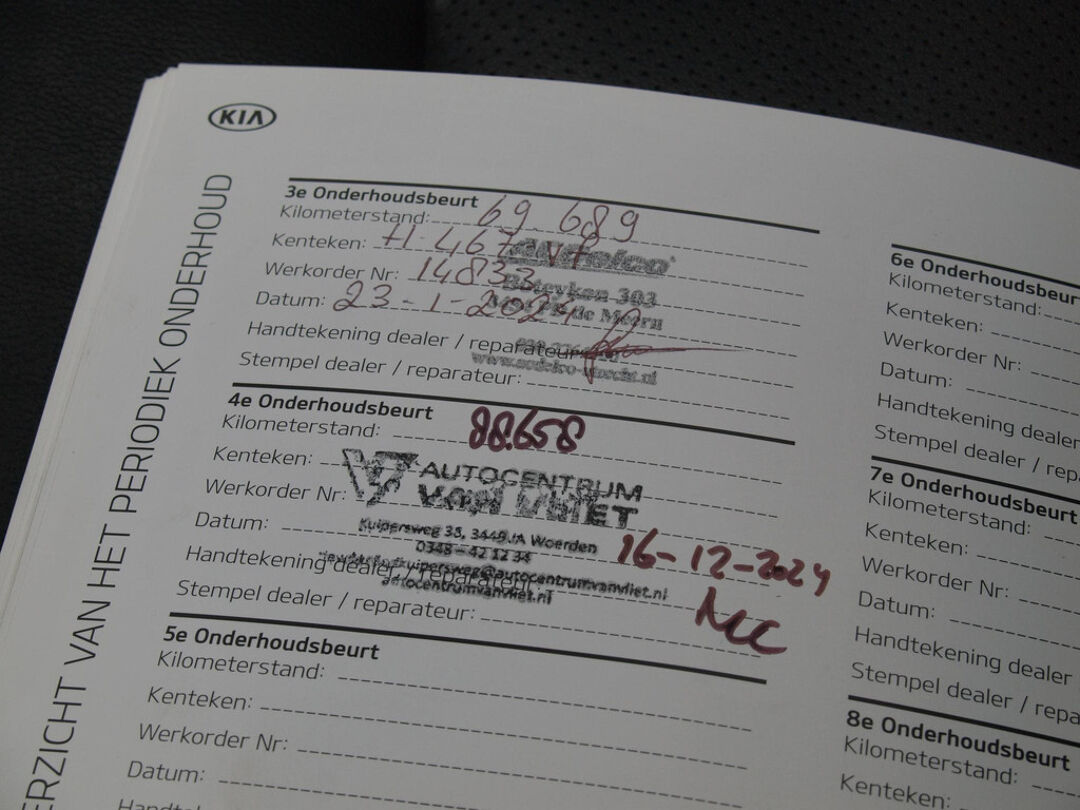 KIA
ERZICHT VAN HET PERIODIEK ONDERHOUD
3e Onderhoudsbeurt
Kilometerstand: 69.689
Kenteken: H-467
Werkorder Nr: 14833
Datum: 23-1-2024
Handtekening dealer / reparateur:
Stempel dealer / reparateur:
303
de Meern
4e Onderhoudsbeurt
Kilometerstand: 88.658
Kenteken:
Werkorder Nr:
Datum: 16-12-2024
Handtekening dealer / reparateur:
Stempel dealer / reparateur:
AUTOCENTRUM
VAN VLIET
Kuipersweg 35, 3449 JA Woerden
0348-42 12 34
autocentrumvanvliet.nl
5e Onderhoudsbeurt
Kilometerstand:
Kenteken:
Werkorder Nr:
Datum:
6e Onderhoudsbeurt
Kilometerstand:
Kenteken:
Werkorder Nr:
Datum:
Handtekening dealer
Stempel dealer / repa
7e Onderhoudsbeurt
Kilometerstand:
Kenteken:
Werkorder Nr:
Datum:
Handtekening dealer
Stempel dealer / repa
8e Onderhoudsbeurt
Kilometerstand:
Kenteken: